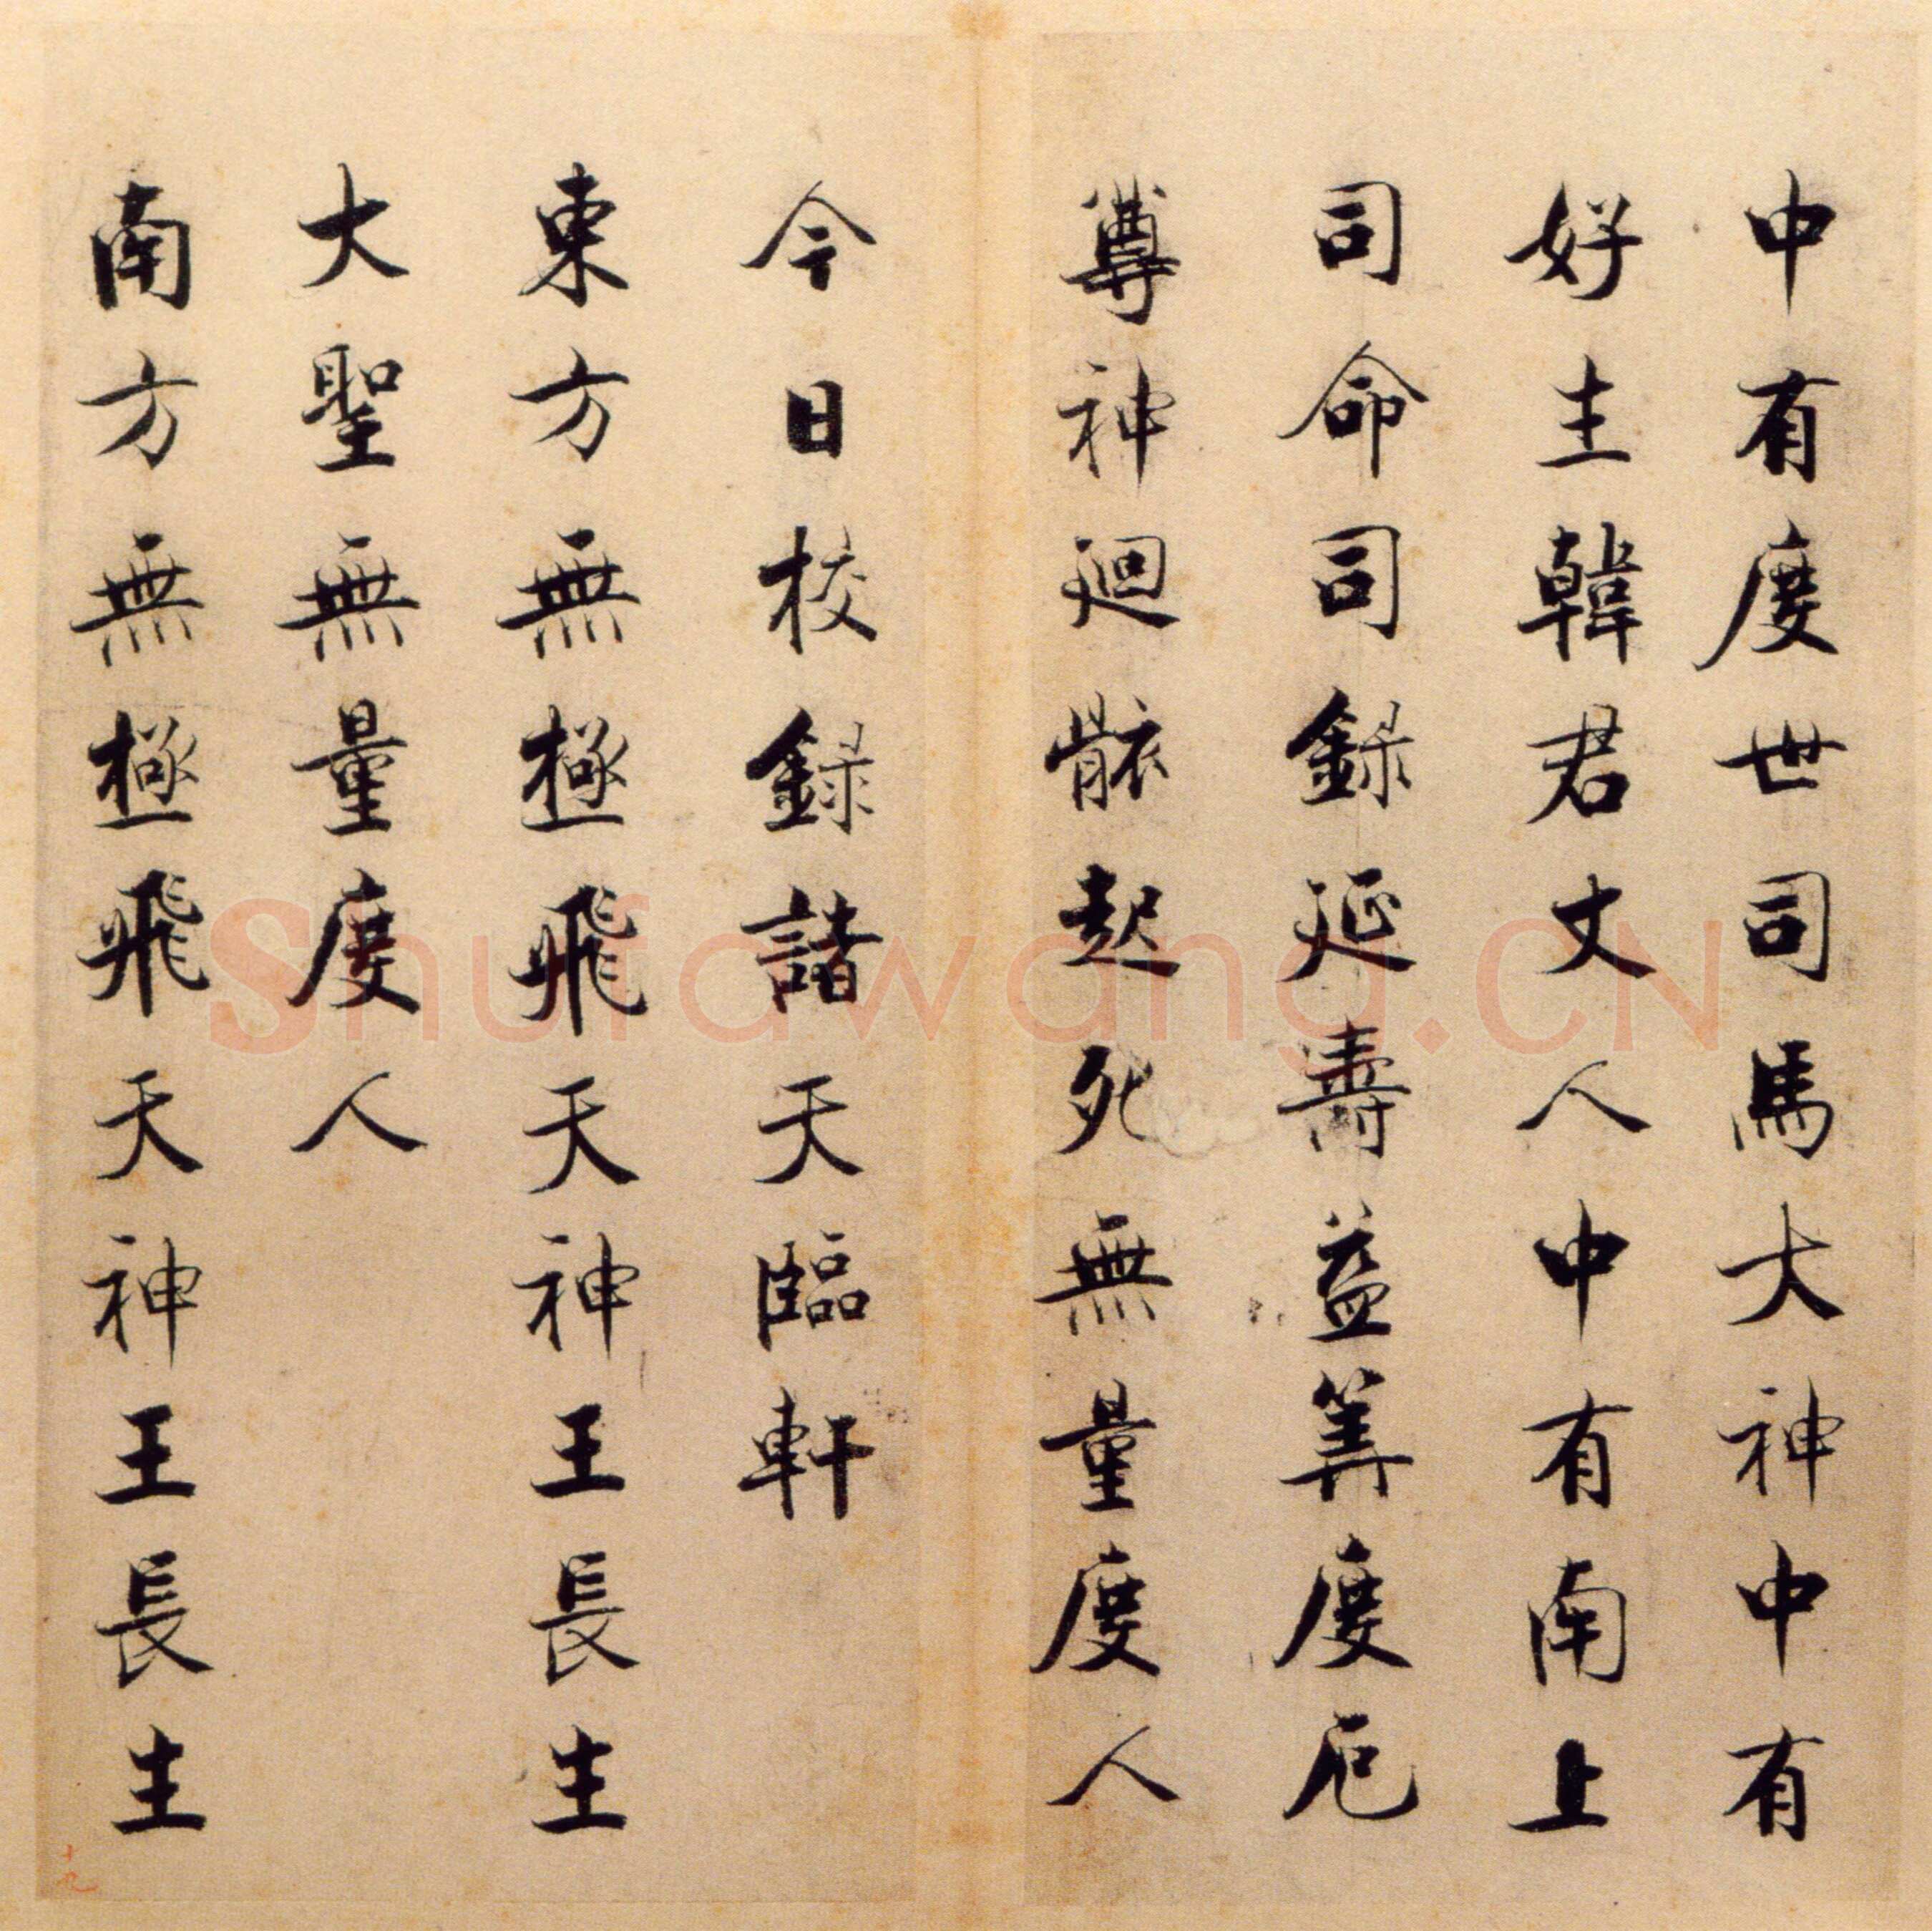 中有度世司馬大神中有
好生韓君丈人中有南上
司命司錄延壽益筭度厄
尊神廻骸起死無量度人
今日校錄諸天臨軒
東方無極飛天神王長生
大聖無量度人
南方無極飛天神王長生
十九
Shufawang.CN